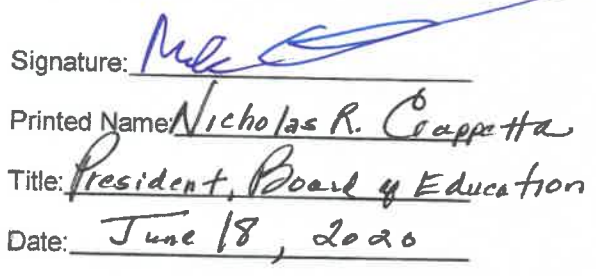 Signature:
Printed Name: Nicholas R. Ciappetta
Title: President, Board of Education
Date: June 18, 2020